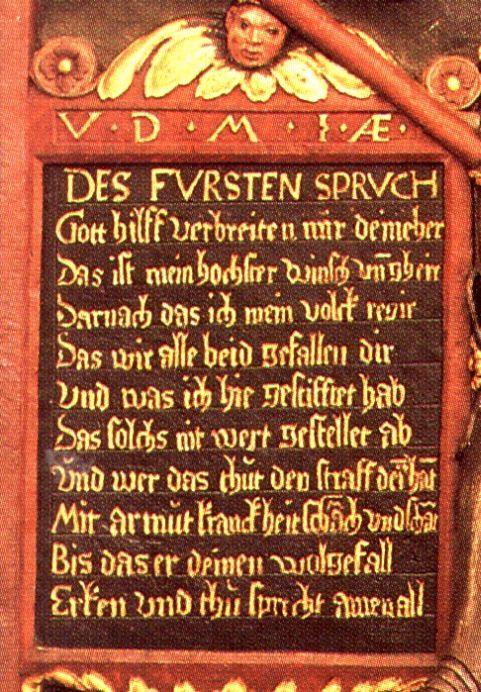 V · D · M · I · Æ ·
DES FVRSTEN SPRVCH
Gott hilff verbreiten mir dein eher
Das ist mein hochster winsch vn̄
Darnach das ich mein volck regir
Das wir alle beid gefallen dir
Vnd was ich hie gestifftet hab
Das solchs nit wert gestellet ab
Vnd wer das thůt den straff
Mit armůt kranckheit schach vnd
Bis das er deinen wolgefall
Erken vnd thů sprecht amen all